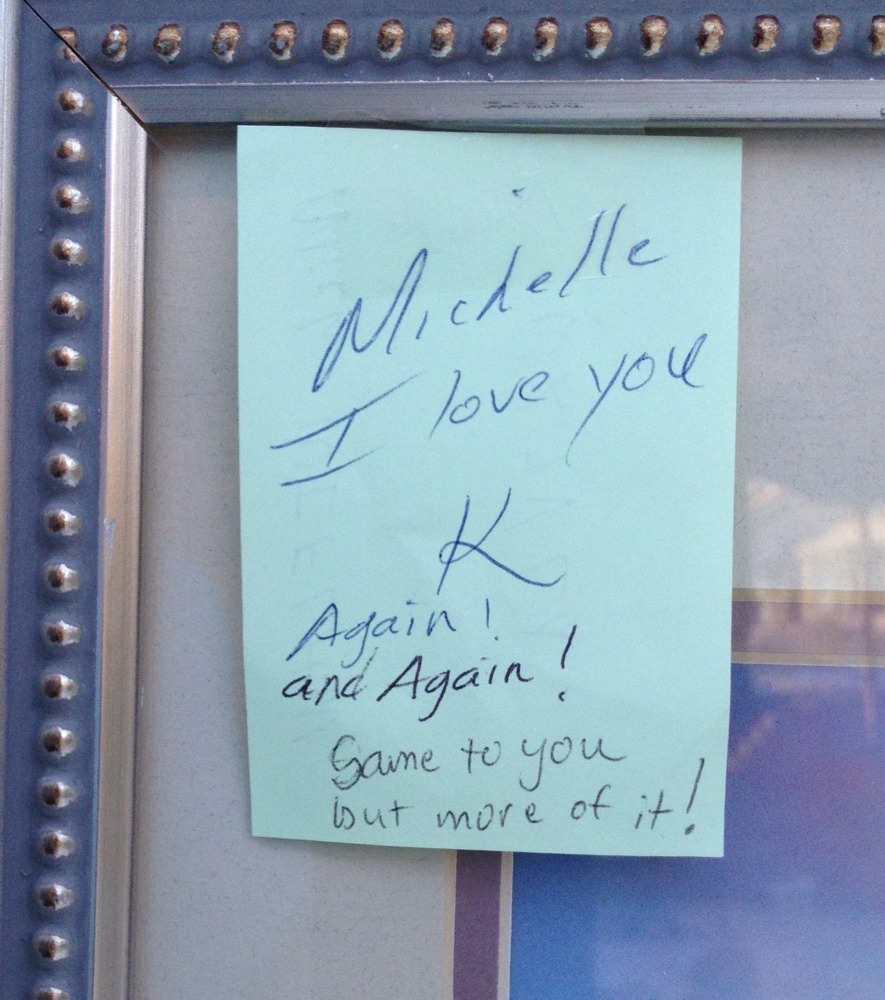 Michelle
I love you
K
Again!
and Again!
Same to you
but more of it!